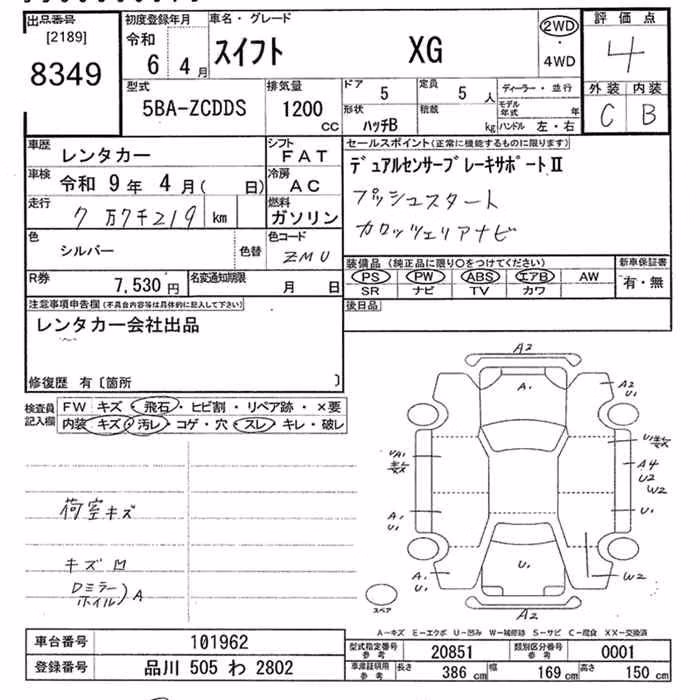 出品番号
[2189]
8349
初度登録年月
令和
6 4月
車名・グレード
スイフト XG
2WD
・
4WD
評価点
4
外装 内装
C B
型式
5BA-ZCDDS
排気量
1200
CC
ドア
5
定員
5 人
形状
ハッチB
積載
kg
ディーラー・並行
モデル年式
年
ハンドル 左・右
車歴
レンタカー
シフト
FAT
車検 令和 9年 4月( 日)
冷房
AC
走行
7万7千219 km
燃料
ガソリン
色
シルバー
色替
色コード
ZMU
R券
7,530円
名変通知期限
月 日
セールスポイント(正常に機能するものに限ります)
デュアルセンサーブレーキサポートⅡ
プッシュスタート
カロッツェリアナビ
装備品(純正品に限り○をつけてください)
PS PW ABS エアB AW
SR ナビ TV カワ
新車保証書
有・無
後日品
注意事項申告欄(不具合内容等は具体的に記入して下さい)
レンタカー会社出品
修復歴 有〔箇所 〕
検査員記入欄
FW キズ・飛石・ヒビ割・リペア跡・×要
内装 キズ・汚レ・コゲ・穴・スレ・キレ・破レ
荷室キズ
キズ凹
Dミラー
ホイル)A
A2
A.
A2
U1
U1
A4
U2
W2
U1
W2
A1
U1
A.
U1
U1
A2
スペア
A-キズ E-エクボ U-凹み W-補修跡 S-サビ C-腐食 XX-交換済
車台番号 101962
登録番号 品川 505 わ 2802
型式指定番号
参考
20851
類別区分番号
参考
0001
車庫証明用
参考
長さ 386 cm
幅 169 cm
高さ 150 cm